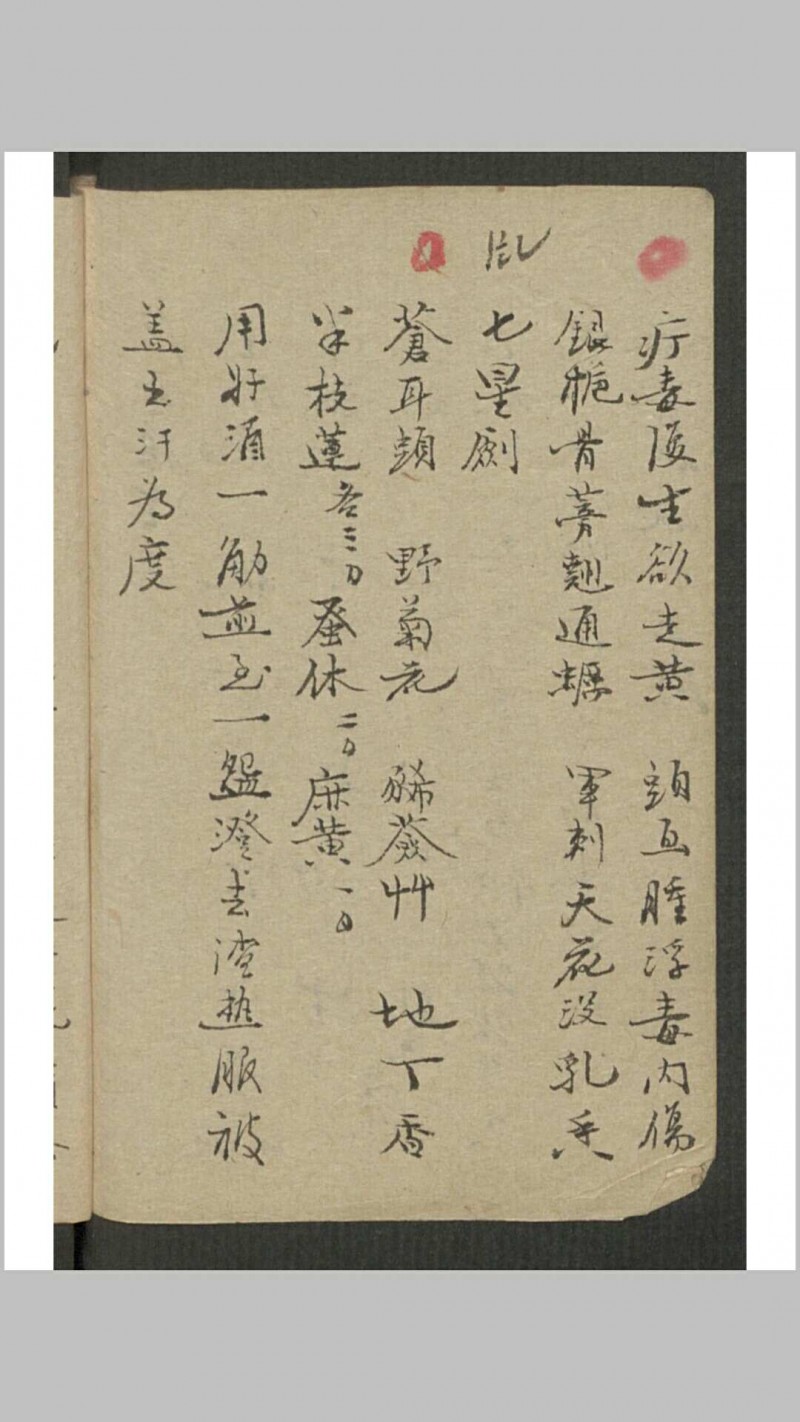 疔毒後生欲走黃　頭面腫浮毒內傷
銀梔骨蒡翹通蠣　軍刺天花沒乳香
七星劍
蒼耳頭　野菊花　豨薟艸　地丁香
半枝蓮各三刃　蚤休二刃　麻黃一刃
用好酒一觔煎至一盌澄去渣热服被
蓋出汗為度